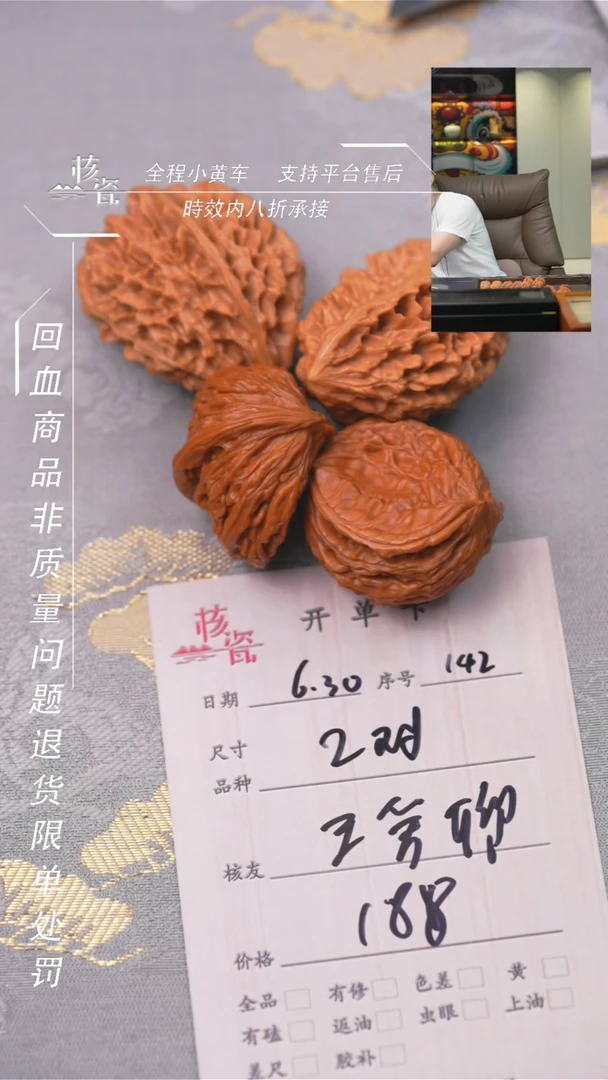 核瓷
全程小黄车 支持平台售后
時效内八折承接
回血商品非质量问题退货限单处罚
核瓷 开单卡
日期 6.30 序号 142
尺寸 2对
品种
核友
价格 188
全品 有修 色差 黄
有磕 返油 虫眼 上油
差尺 胶补